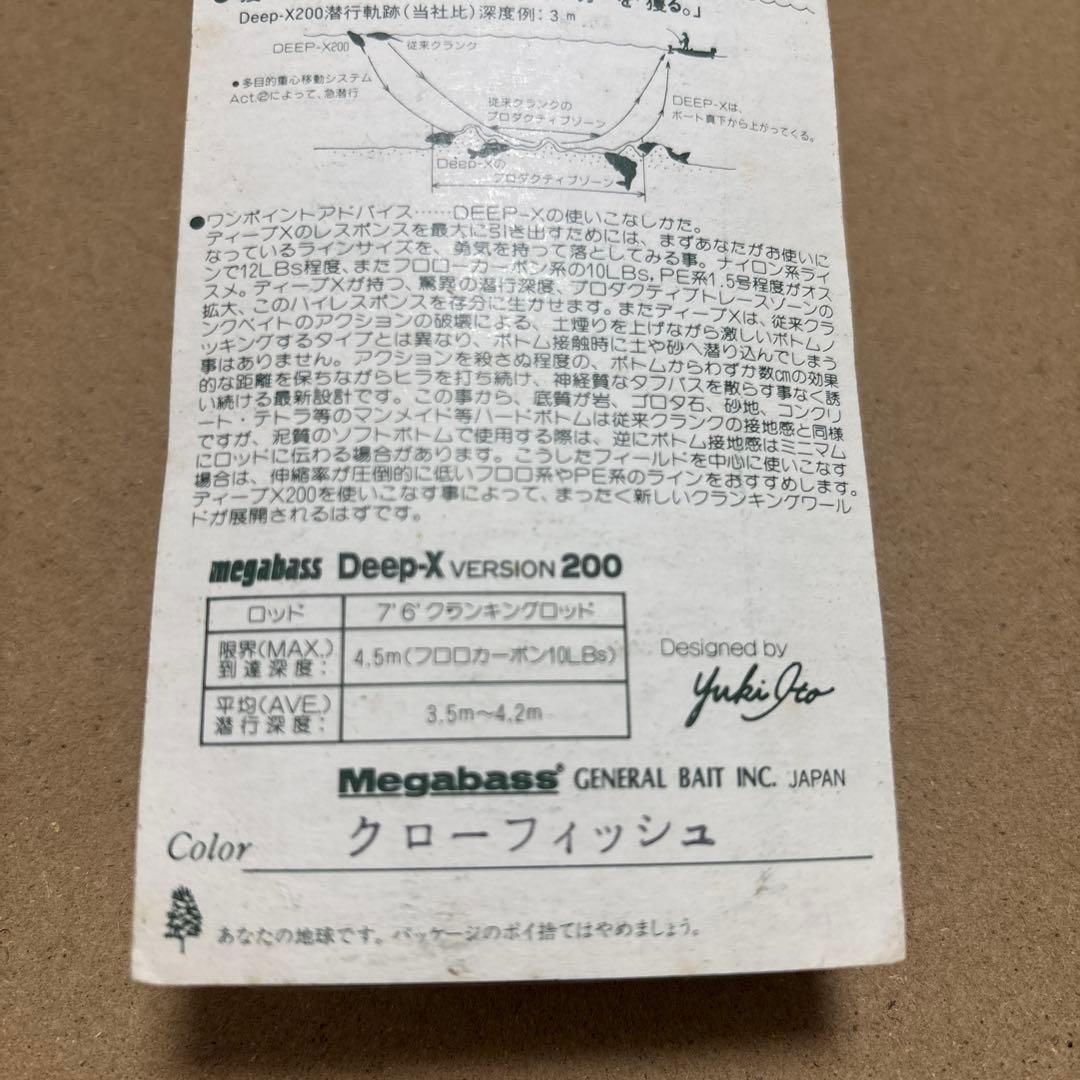 を"獲る。」
Deep-X200潜行軌跡(当社比)深度例:3m
DEEP-X200
従来クランク
●多目的重心移動システム
Act.②によって、急潜行
従来クランクの
プロダクティブゾーン
DEEP-Xは、
ボート真下から上がってくる。
Deep-Xの
プロダクティブゾーン
●ワンポイントアドバイス……DEEP-Xの使いこなしかた。
ディープXのレスポンスを最大に引き出すためには、まずあなたがお使いに
なっているラインサイズを、勇気を持って落としてみる事。ナイロン系ライ
ンで12LBs程度、またフロローカーボン系の10LBs, PE系1.5号程度がオス
スメ。ディープXが持つ、驚異の潜行深度、プロダクティブトレースゾーンの
拡大、このハイレスポンスを存分に生かせます。またディープXは、従来クラ
ンクベイトのアクションの破壊による、土煙りを上げながら激しいボトムノ
ッキングするタイプとは異なり、ボトム接触時に土や砂へ潜り込んでしまう
事はありません。アクションを殺さぬ程度の、ボトムからわずか数㎝の効果
的な距離を保ちながらヒラを打ち続け、神経質なタフバスを散らす事なく誘
い続ける最新設計です。この事から、底質が岩、ゴロタ石、砂地、コンクリ
ート・テトラ等のマンメイド等ハードボトムは従来クランクの接地感と同様
ですが、泥質のソフトボトムで使用する際は、逆にボトム接地感はミニマム
にロッドに伝わる場合があります。こうしたフィールドを中心に使いこなす
場合は、伸縮率が圧倒的に低いフロロ系やPE系のラインをおすすめします。
ディープX200を使いこなす事によって、まったく新しいクランキングワール
ドが展開されるはずです。
megabass Deep-X VERSION 200
ロッド 7'6'クランキングロッド
限界(MAX.)到達深度: 4.5m(フロロカーボン10LBs)
平均(AVE.)潜行深度: 3.5m〜4.2m
Designed by
Yuki Ito
Megabass® GENERAL BAIT INC. JAPAN
Color クローフィッシュ
あなたの地球です。パッケージのポイ捨てはやめましょう。